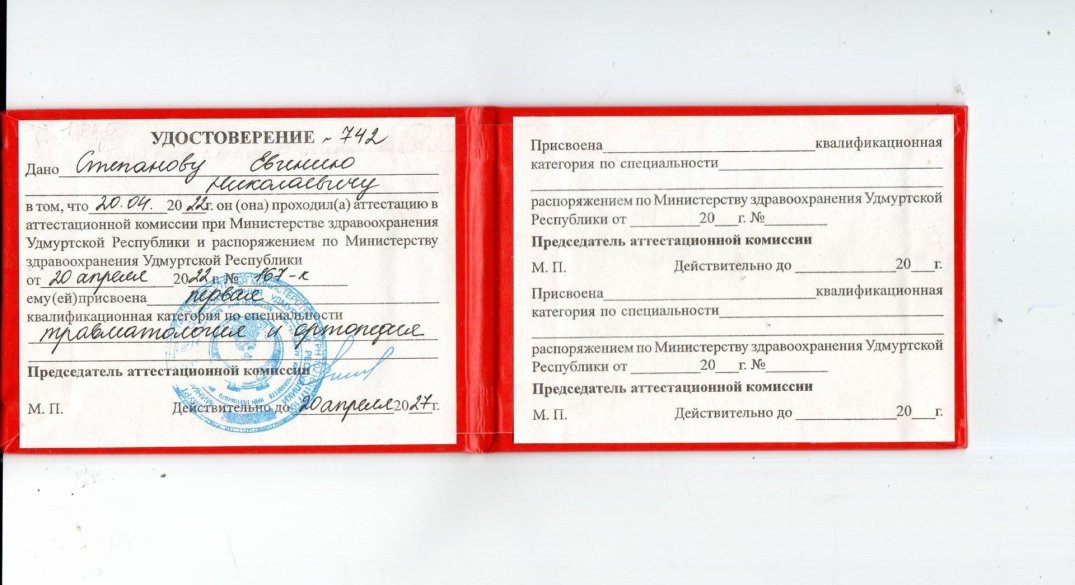 УДОСТОВЕРЕНИЕ - 742
Дано Степанову Евгению
Николаевичу
в том, что 20.04. 2022г. он (она) проходил(а) аттестацию в
аттестационной комиссии при Министерстве здравоохранения
Удмуртской Республики и распоряжением по Министерству
здравоохранения Удмуртской Республики
от 20 апреля 2022 г. № 167-к
ему(ей)присвоена первая
квалификационная категория по специальности
травматология и ортопедия
Председатель аттестационной комиссии
М. П. Действительно до 20 апреля 2027г.
Присвоена квалификационная
категория по специальности
распоряжением по Министерству здравоохранения Удмуртской
Республики от 20 г. №
Председатель аттестационной комиссии
М. П. Действительно до 20 г.
Присвоена квалификационная
категория по специальности
распоряжением по Министерству здравоохранения Удмуртской
Республики от 20 г. №
Председатель аттестационной комиссии
М. П. Действительно до 20 г.